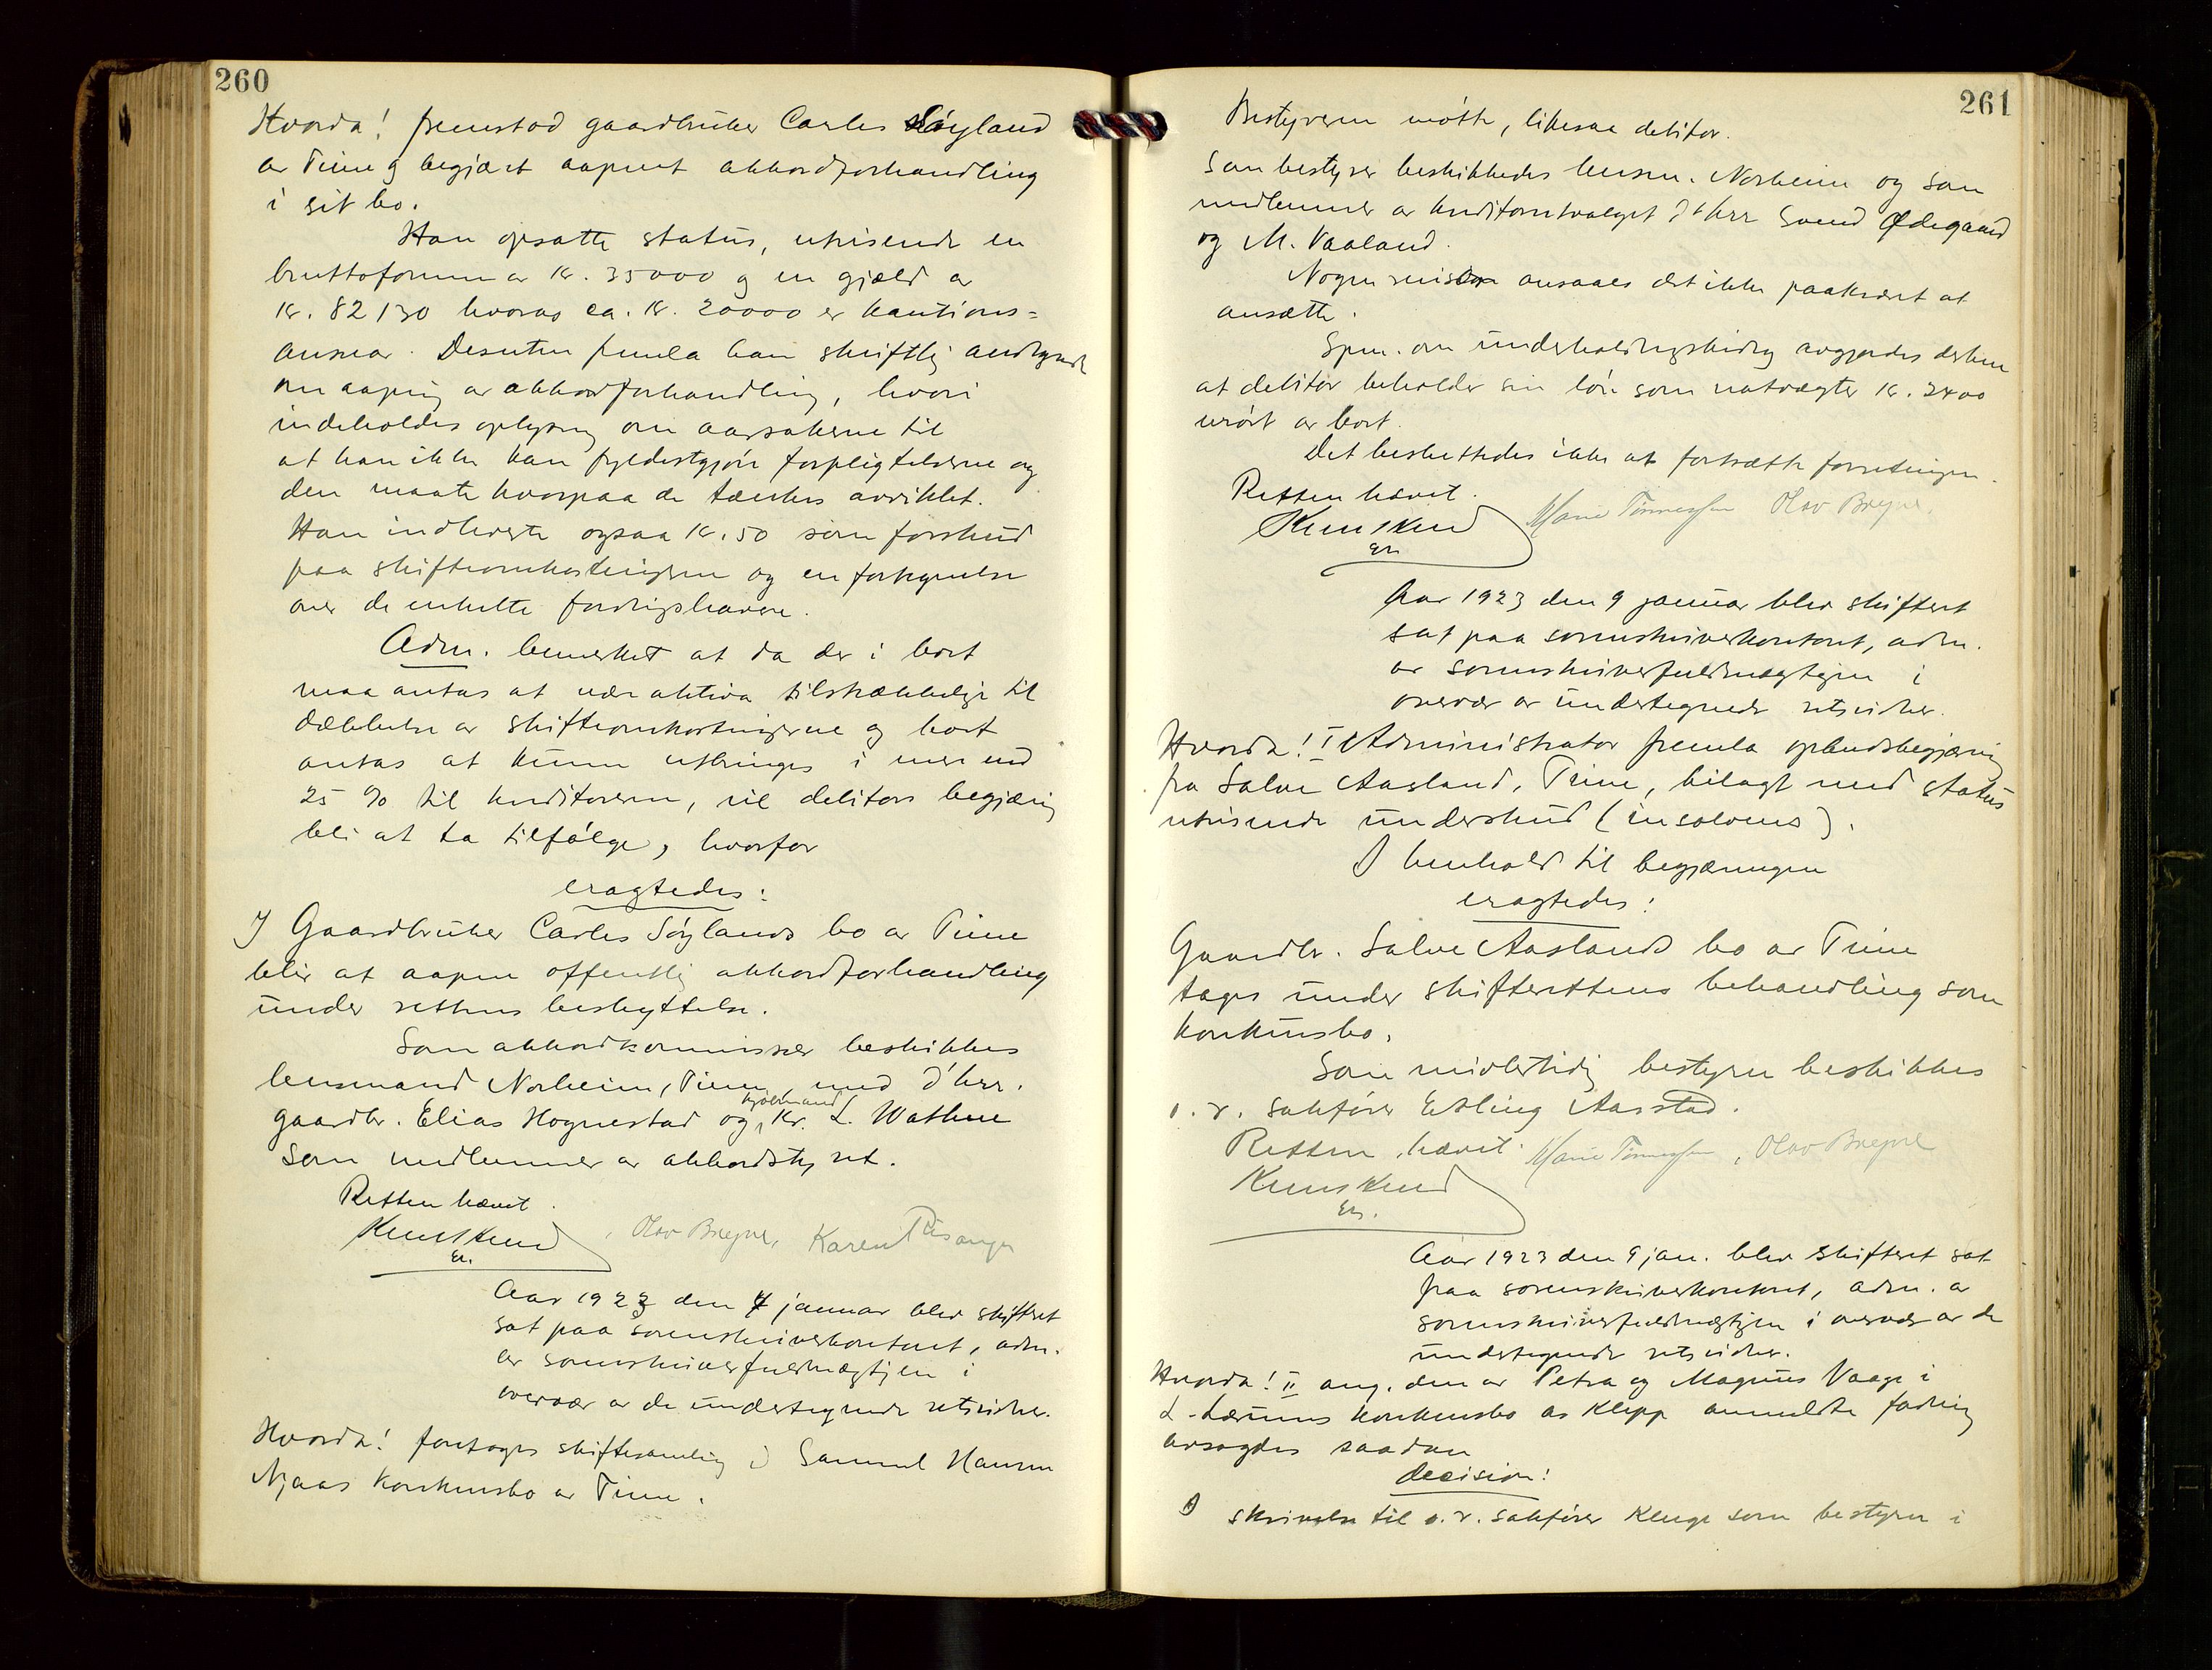 260
Hvorda! fremstod gaardbruker Carles Søyland
av Time og begjært aapnet akkordforhandling
i sit bo.
Han opsatte status, utvisende en
bruttoformue av kr. 35000 og en gjæld av
kr. 82130 hvorav ca. kr. 20000 er kautions=
ansvar. Desuten fremla han skriftlig andragende
om aapning av akkordforhandling, hvori
indeholdes oplysning om aarsakerne til
at han ikke kan fyldestgjøre forpligtelserne og
den maate hvorpaa de tænkes avviklet.
Han indleverte ogsaa kr. 50 som forskud
paa skifteomkostningerne og en fortegnelse
over de enkelte fordringshavere.
Adm. bemerket at da der i boet
maa antas at være aktiva tilstrækkelige til
dækkelse av skifteomkostningerne og boet
antas at kunne utbringes i mer end
25 % til kreditorerne, vil debitors begjæring
bli at ta tilfølge, hvorfor
eragtedes:
I Gaardbruker Carles Søylands bo av Time
blir at aapne offentlig akkordforhandling
under rettens beskyttelse.
Som akkordkommissær beskikkes
lensmand Norheim, Time, med d'hrr.
gaardbr. Elias Hognestad og kjøbmand Kr. L. Wathne
som medlemmer av akkordstyret.
Retten hævet.
Olav Bregne, Karen Risanger
Aar 1923 den 4 januar blev skifteret
sat paa sorenskriverkontoret, adm.
av sorenskriverfuldmægtigen i
overvær av de undertegnede retsvidner.
Hvorda! foretoges skiftesamling i Samuel Hansen
Njaas konkursbo av Time.
261
Bestyreren møtte, likesaa debitor.
Som bestyrer beskikkedes lensm. Norheim og som
medlemmer av kreditorutvalget d'hrr Svend Ødegaard
og M. Vaaland.
Nogen revisor ansaaes det ikke paakrævet at
ansætte.
Spm. om underholdningsbidrag avgjordes derhen
at debitor beholder sin løn som natvægter kr. 2400
urørt av boet.
Det besluttedes ikke at fortsætte forretningen.
Retten hævet.
Marie Tønnessen Olav Bregne.
Aar 1923 den 9 januar blev skifteret
sat paa sorenskriverkontoret, adm.
av sorenskriverfuldmægtigen i
overvær av undertegnede retsvidner.
Hvorda! I Administrator fremla opbudsbegjæring
fra Salve Aasland, Time, bilagt med status
utvisende underskud (insolvens).
I henhold til begjæringen
eragtedes:
Gaardbr. Salve Aaslands bo av Time
tages under skifterettens behandling som
konkursbo.
Som midlertidig bestyrer beskikkes
o. r. sakfører Erling Aarstad.
Retten hævet. Marie Tønnessen, Olav Bregne
Aar 1923 den 9 jan. blev skifteret sat
paa sorenskriverkontoret, adm. av
sorenskriverfuldmægtigen i overvær av de
undertegnede retsvidner.
Hvorda! II ang. den av Petra og Magnus Vaage i
L. Lærums konkursbo av Klepp anmeldte fordring
avsagdes saadan
decision:
I skrivelse til o. r. sakfører Kluge som bestyrer i